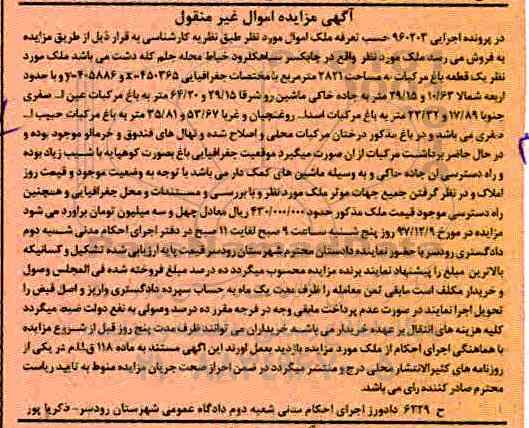 آگهی مزایده اموال غیر منقول
در پرونده اجرایی ۹۶۰۲۰۳ حسب تعرفه ملک اموال مورد نظر طبق نظریه کارشناسی به قرار ذیل از طریق مزایده
به فروش می رسد ملک مورد نظر واقع در چابکسر سیاهکلرود خیاط محله جلم کله دشت می باشد ملک مورد
نظر یک قطعه باغ مرکبات به مساحت ۲۸۲۱ مترمربع با مختصات جغرافیایی x-۴۵۰۳۶۵ و y-۴۰۵۸۸۶ و با حدود
اربعه شمالا ۱۰/۶۳ و ۲۹/۱۵ متر به جاده خاکی ماشین رو شرقا ۲۹/۱۵ و ۶۴/۲۰ متر به باغ مرکبات عین ا... صفری
جنوبا ۱۷/۸۹ و ۲۳/۳۲ متر به باغ مرکبات اسدا... روغنچیان و غربا ۵۳/۶۷ و ۳۵/۸۱ متر به باغ مرکبات حبیب ا...
صفری می باشد و در باغ مذکور درختان مرکبات محلی و اصلاح شده و نهال های فندوق و خرمالو موجود بوده و
در حال حاضر برداشت مرکبات از ان صورت میگیرد موقعیت جغرافیایی باغ بصورت کوهپایه با شیب زیاد بوده
و راه دسترسی ان جاده خاکی و به وسیله ماشین های کمک دار می باشد با توجه به وضعیت موجود و قیمت روز
املاک و در نظر گرفتن جمیع جهات موثر ملک مورد نظر و با بررسی و مستندات و محل جغرافیایی و همچنین
راه دسترسی موجود قیمت ملک مذکور حدود ۴۳۰/۰۰۰/۰۰۰ ریال معادل چهل و سه میلیون تومان براورد می شود
مزایده در مورخ ۹۷/۱۲/۹ روز پنج شنبه ساعت ۹ صبح لغایت ۱۱ صبح در دفتر اجرای احکام مدنی شعبه دوم
دادگستری رودسر با حضور نماینده دادستان محترم شهرستان رودسر قیمت پایه ارزیابی شده تشکیل و کسانیکه
بالاترین مبلغ را پیشنهاد نمایند برنده مزایده محسوب میگردد ده درصد مبلغ فروخته شده فی المجلس وصول
و خریدار مکلف است مابقی ثمن معامله را ظرف مدت یک ماه به حساب سپرده دادگستری واریز و اصل فیش را
تحویل اجرا نمایند در صورت عدم پرداخت مابقی وجه در فرجه مقرر ده درصد وصولی به نفع دولت ضبط میگردد
کلیه هزینه های انتقال بر عهده خریدار می باشد خریداران می توانند ظرف مدت پنج روز قبل از شروع مزایده
با هماهنگی اجرای احکام از ملک مورد مزایده بازدید بعمل اورند این اگهی مستند به ماده ۱۱۸ ق.ا.م در یکی از
روزنامه های کثیرالانتشار محلی درج و منتشر میگردد در ضمن احراز صحت جریان مزایده منوط به تایید ریاست
محترم صادر کننده رای می باشد.
ح ۶۲۳۹ دادورز اجرای احکام مدنی شعبه دوم دادگاه عمومی شهرستان رودسر- ذکریا پور